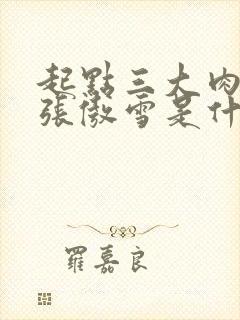 起點三大肉
張傲雪是什
羅嘉良